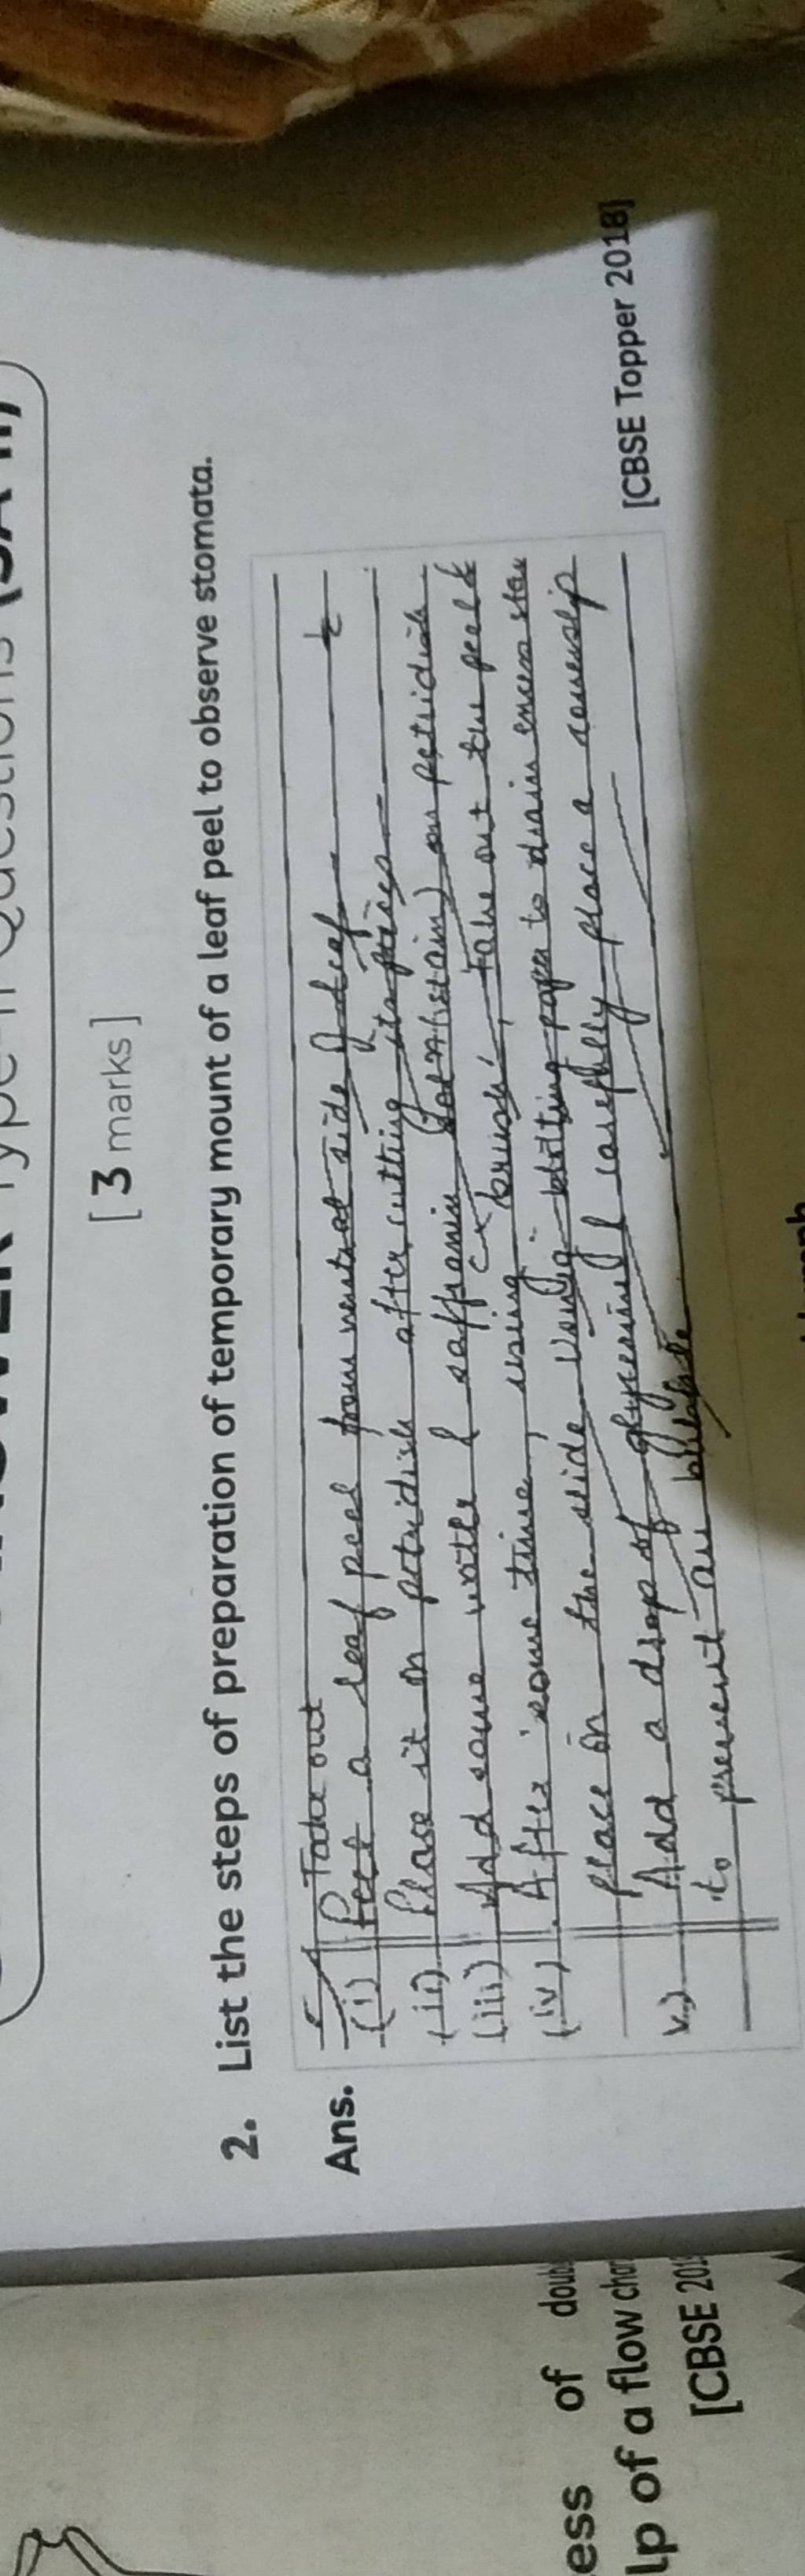 [ 3 marks ]
2. List the steps of preparation of temporary mount of a leaf peel to observe stomata.
Ans.
Take out
(i) a leaf peel from ventral side of leaf
(ii) Place it in petridish after cutting its pieces
(iii) Add some water & saffranin (stain) on petridish
(iv) After some time, using brush, take out the peel &
place on the slide using blotting paper to drain excess stain
v.) Add a drop of glycerine & carefully place a coverslip
to prevent air
[CBSE Topper 2018]
ess of doub
lp of a flow char
[CBSE 201